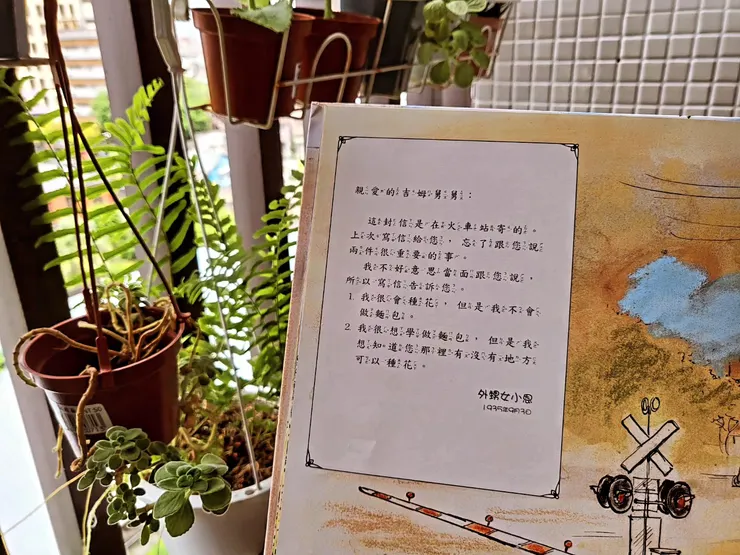 親愛的吉姆舅舅：
這封信是在火車站寄的。
上次寫信給您，忘了跟您說
兩件很重要的事。
我不好意思當面跟您說，
所以寫信告訴您。
1. 我很會種花，但是我不會
做麵包。
2. 我很想學做麵包，但是我
想知道您那裡有沒有地方
可以種花。
外甥女小恩
1935年9月3日